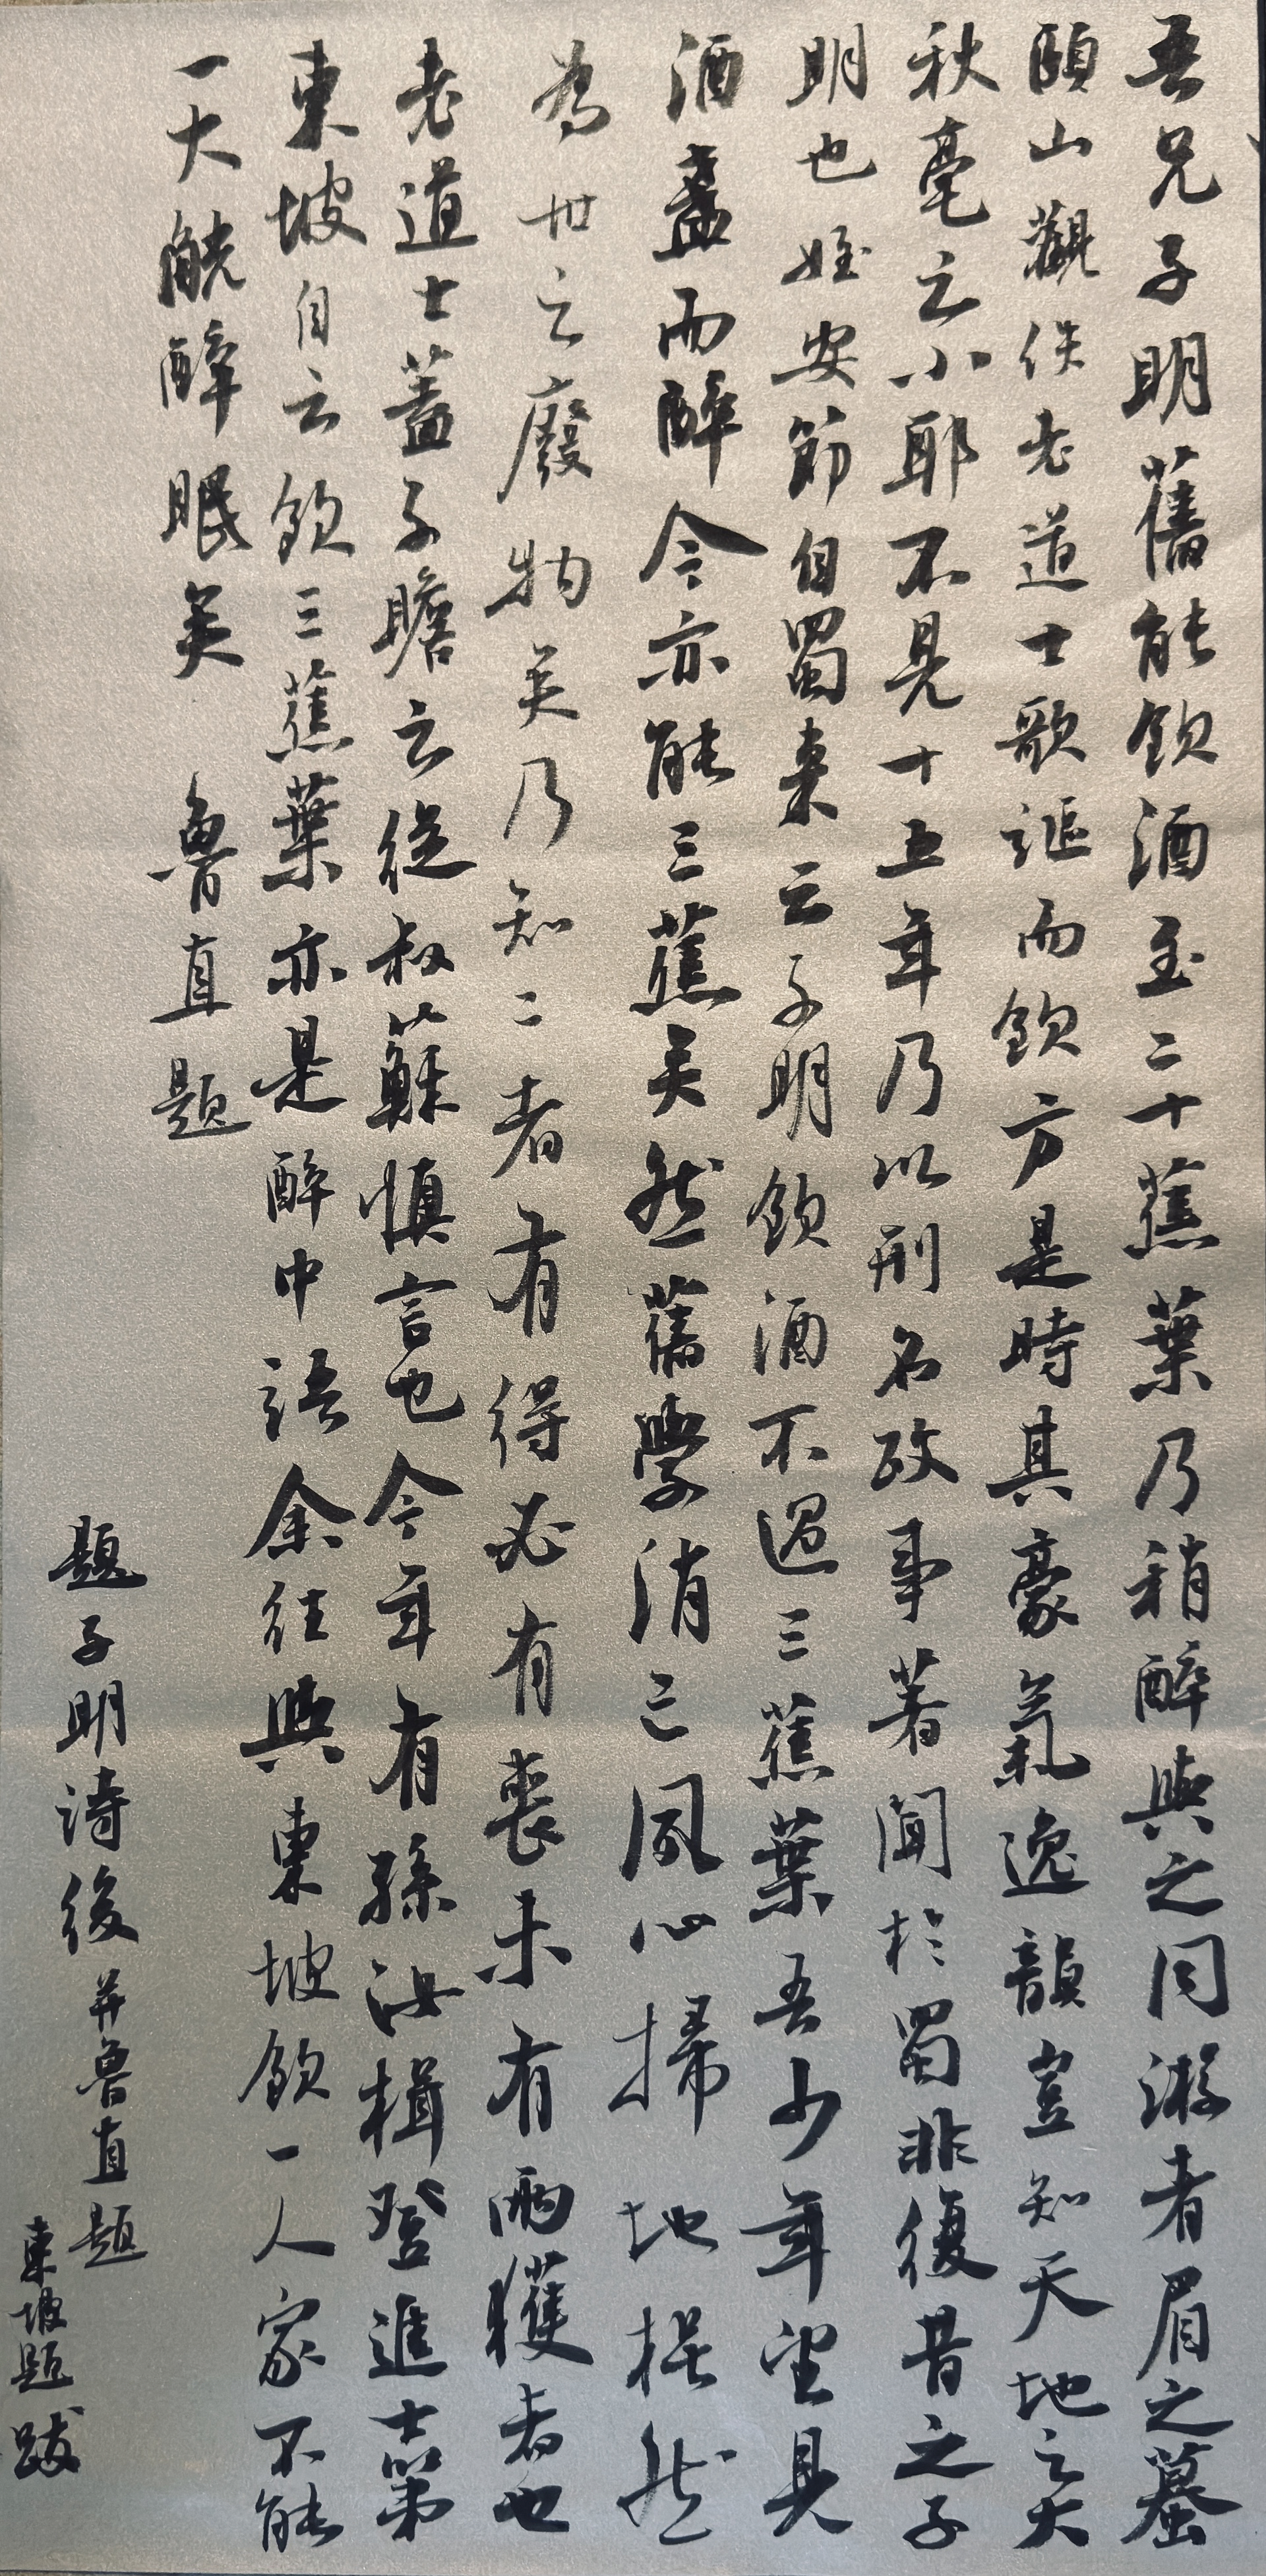 吾兄子明舊能飲酒至二十蕉葉乃稍醉與之同游者眉之蟇
頤山觀佚老道士歌謳而飲方是時其豪氣逸韻豈知天地之大
秋毫之小耶不見十五年乃以刑名政事著聞於蜀非復昔之子
明也姪安節自蜀來云子明飲酒不過三蕉葉吾少年望見
酒盞而醉今亦能三蕉矣然舊學消亡夙心掃地枵然
為世之廢物矣乃知二者有得必有喪未有兩獲者也
老道士蓋子瞻云從叔蘇慎言也今年有孫汝楫登進士第
東坡自云飲三蕉葉亦是醉中語余往與東坡飲一人家不能
一大觥醉眠矣 魯直題
題子明詩後并魯直題
東坡題跋